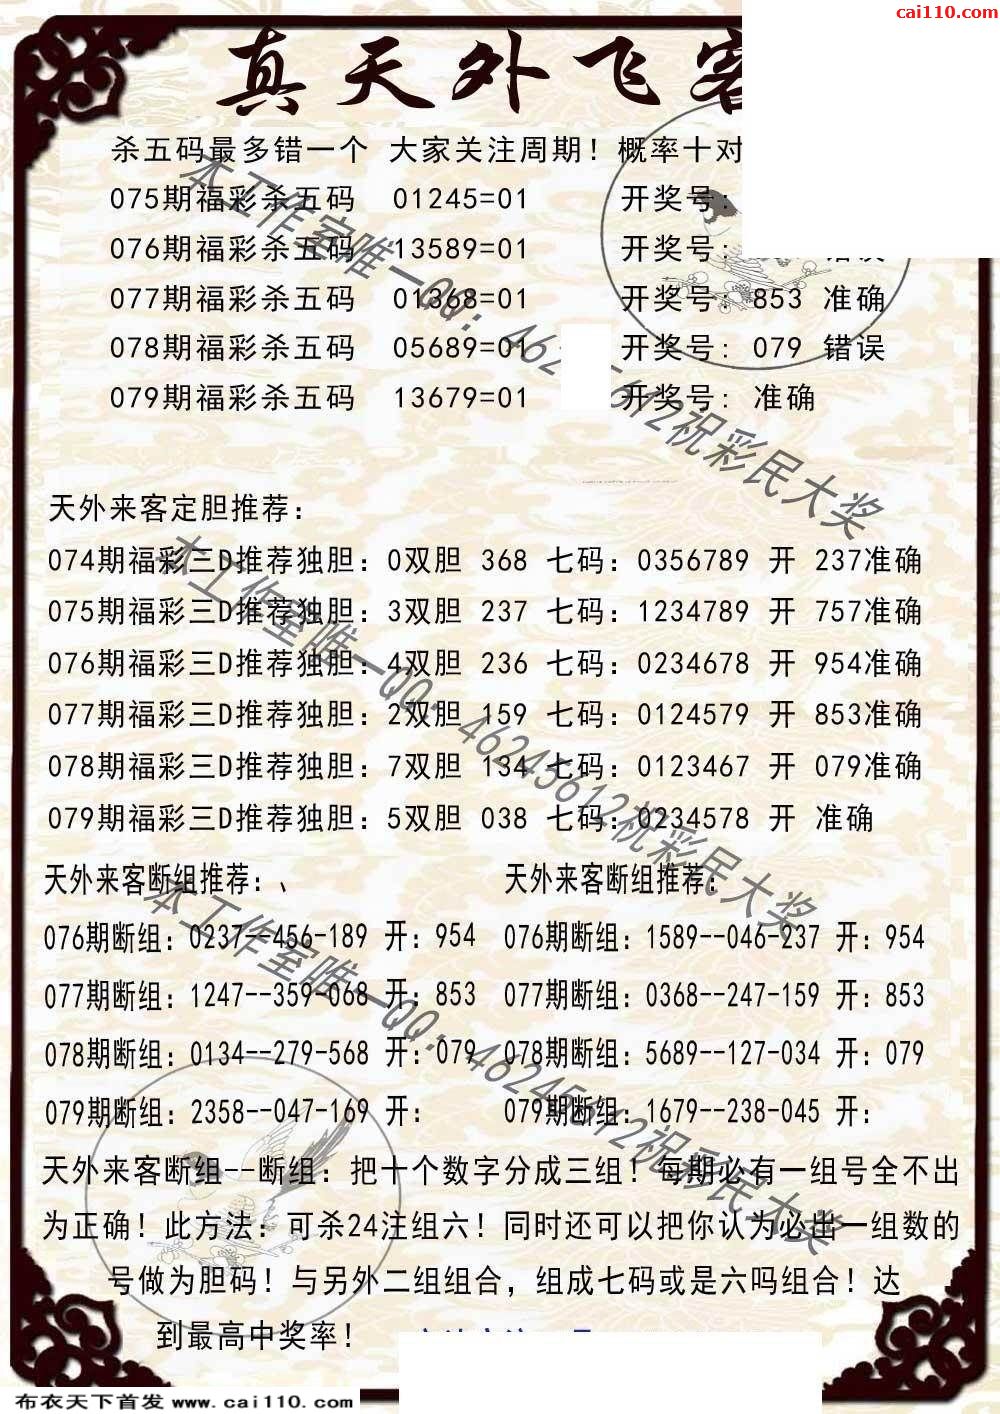 cai110.com
真天外飞客
杀五码最多错一个 大家关注周期！概率十对
075期福彩杀五码 01245=01 开奖号:
076期福彩杀五码 13589=01 开奖号: 错误
077期福彩杀五码 01368=01 开奖号: 853 准确
078期福彩杀五码 05689=01 开奖号: 079 错误
079期福彩杀五码 13679=01 开奖号: 准确
天外来客定胆推荐:
074期福彩三D推荐独胆: 0双胆 368 七码: 0356789 开 237准确
075期福彩三D推荐独胆: 3双胆 237 七码: 1234789 开 757准确
076期福彩三D推荐独胆: 4双胆 236 七码: 0234678 开 954准确
077期福彩三D推荐独胆: 2双胆 159 七码: 0124579 开 853准确
078期福彩三D推荐独胆: 7双胆 134 七码: 0123467 开 079准确
079期福彩三D推荐独胆: 5双胆 038 七码: 0234578 开 准确
天外来客断组推荐:、 天外来客断组推荐:
076期断组: 0237--456-189 开: 954 076期断组: 1589--046-237 开: 954
077期断组: 1247--359-068 开: 853 077期断组: 0368--247-159 开: 853
078期断组: 0134--279-568 开: 079 078期断组: 5689--127-034 开: 079
079期断组: 2358--047-169 开: 079期断组: 1679--238-045 开:
天外来客断组--断组: 把十个数字分成三组！每期必有一组号全不出
为正确！此方法: 可杀24注组六！同时还可以把你认为必出一组数的
号做为胆码！与另外二组组合，组成七码或是六吗组合！达
到最高中奖率！
本工作室唯一QQ: 46245612祝彩民大奖
本工作室唯一QQ: 46245612祝彩民大奖
本工作室唯一QQ: 46245612祝彩民大奖
布衣天下首发 www.cai110.com